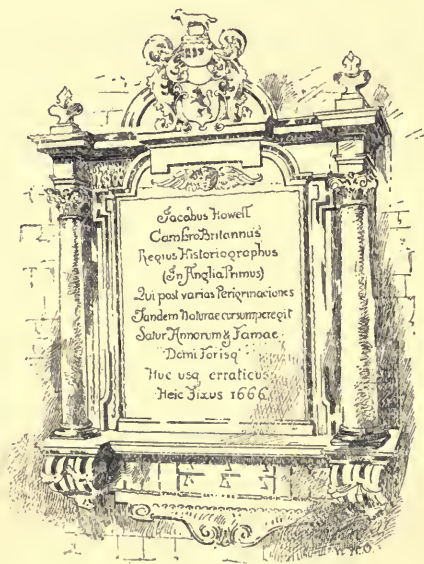 Jacobus Howell
Cambro Britannus
Regius Historiographus
(In Anglia Primus)
Qui post varias Perigrinaciones
Tandem Naturae cursum peregit
Satur Annorum & Famae
Domi Forisq
Huc usq erraticus
Heic Fixus 1666
W.H.O.